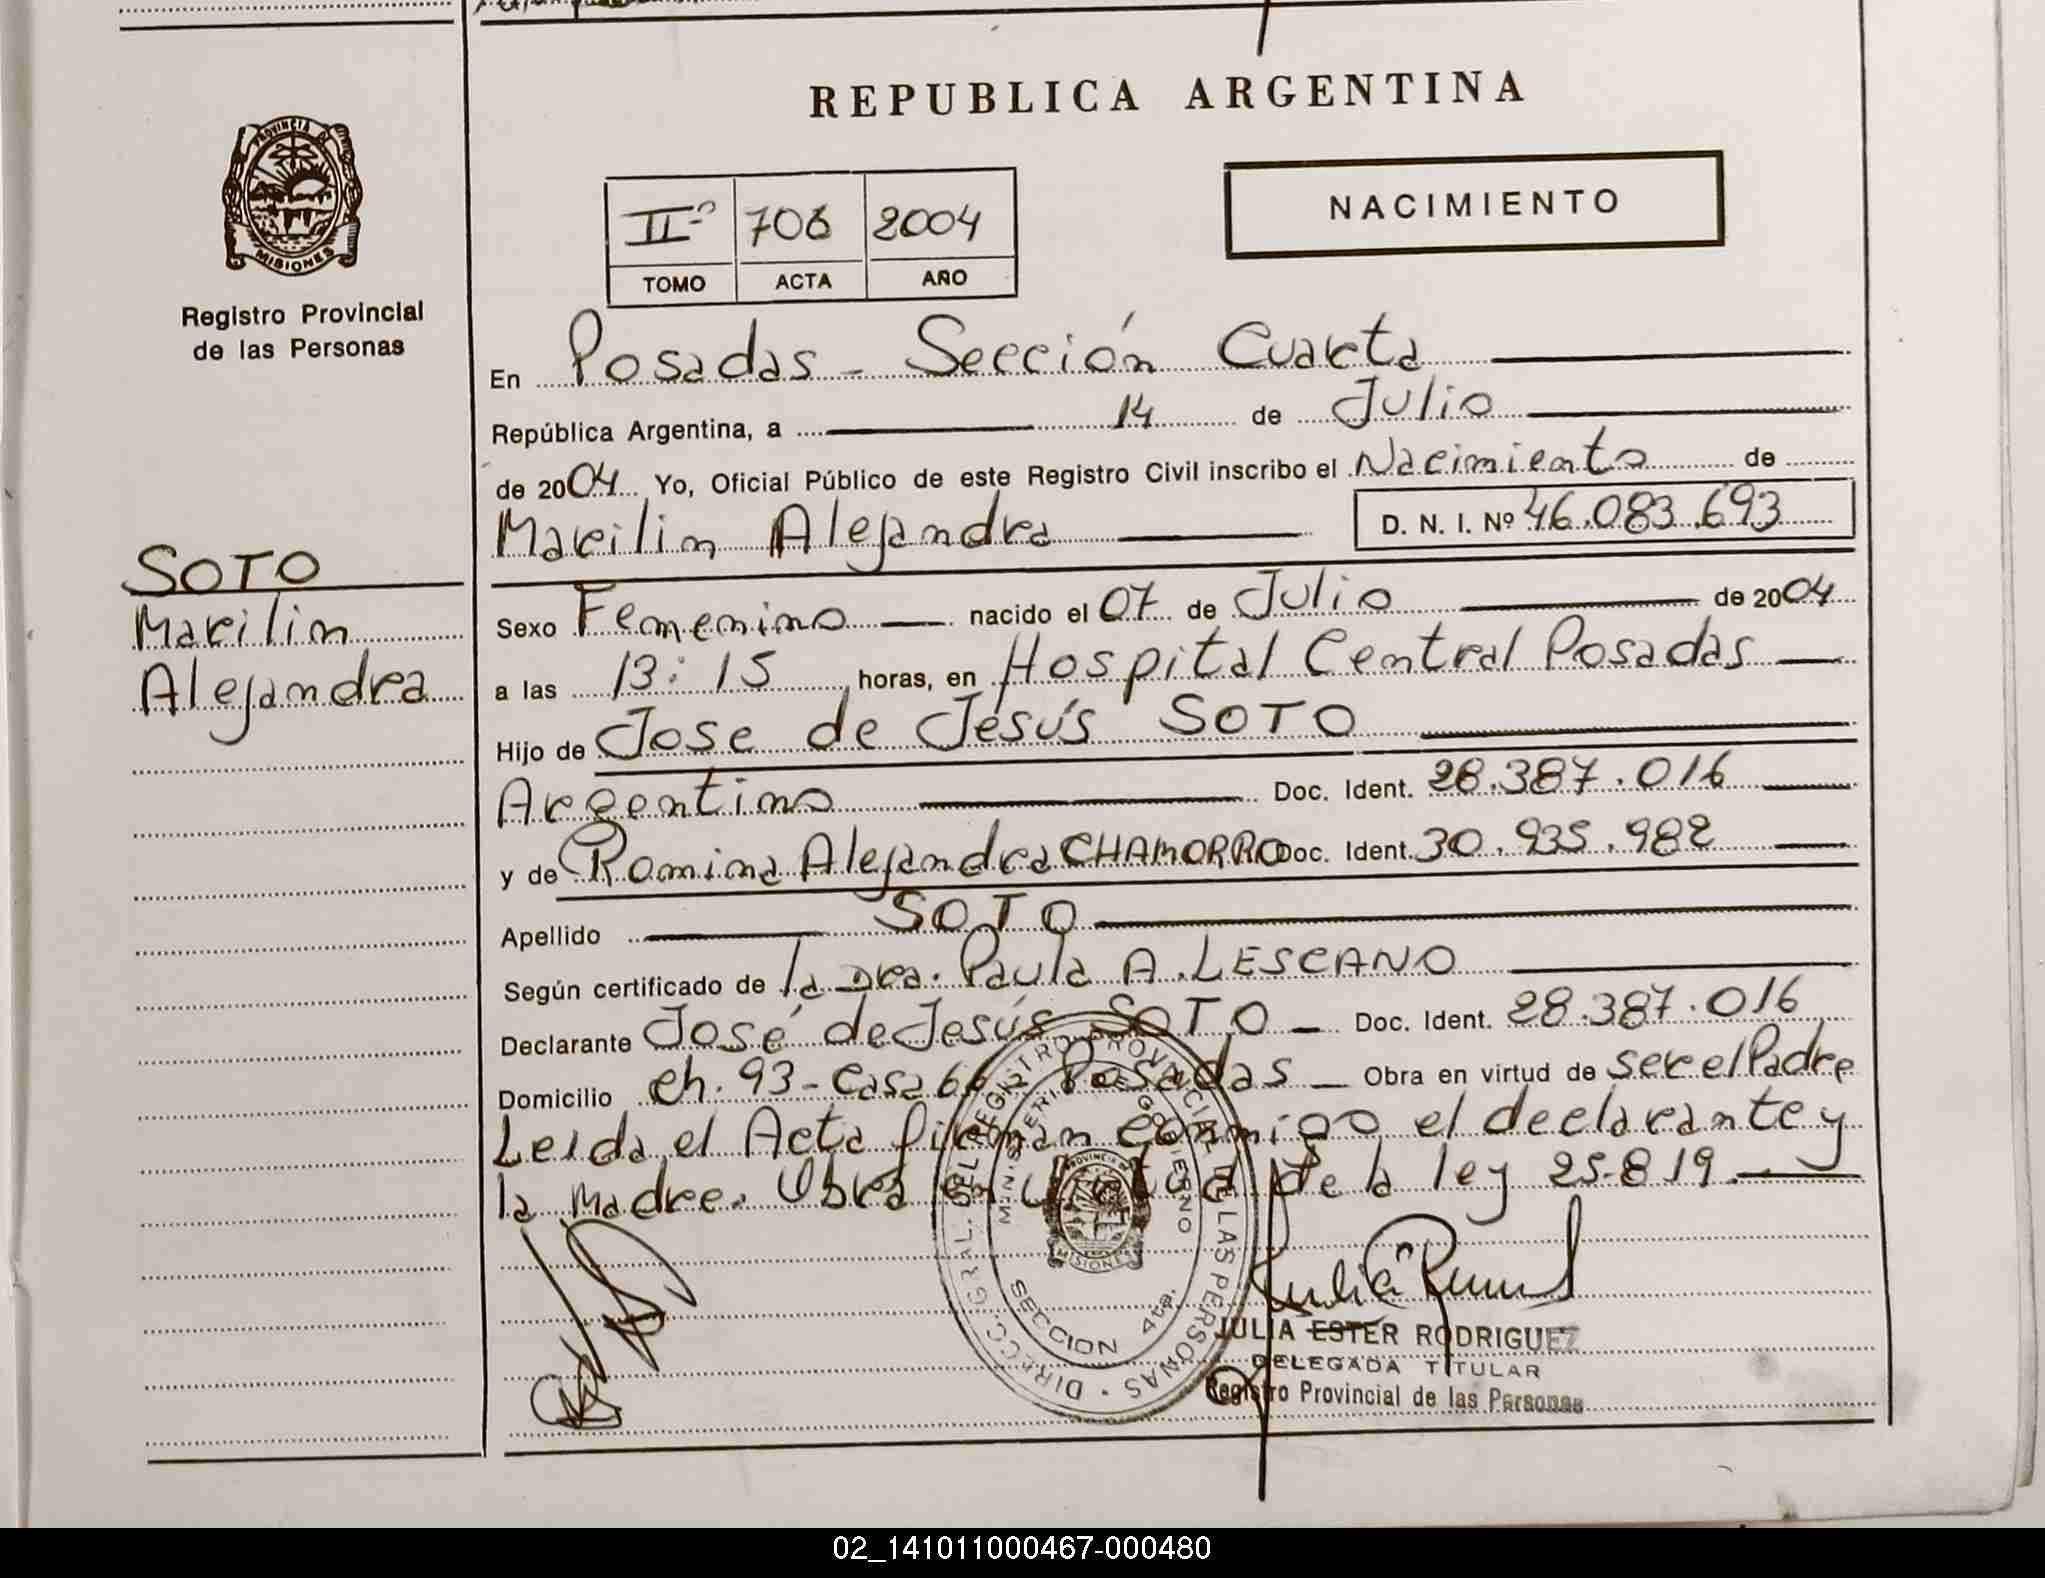 REPUBLICA ARGENTINA
PROVINCIA DE
MISIONES
Registro Provincial
de las Personas
NACIMIENTO
IIº 706 2004
TOMO ACTA AÑO
En Posadas - Sección Cuarta
República Argentina, a 14 de Julio
de 2004 Yo, Oficial Público de este Registro Civil inscribo el Nacimiento de
Marilin Alejandra D. N. I. Nº 46.083.693
SOTO
Marilin
Alejandra
Sexo Femenino nacido el 07 de Julio de 2004
a las 13:15 horas, en Hospital Central Posadas
Hijo de Jose de Jesús SOTO
Argentino Doc. Ident. 28.387.016
y de Romina Alejandra CHAMORRO Doc. Ident. 30.935.982
Apellido SOTO
Según certificado de la Dra. Paula A. LESCANO
Declarante José de Jesús SOTO Doc. Ident. 28.387.016
Domicilio Ch. 93 - Casa Posadas Obra en virtud de ser el Padre
Leida el Acta firman conmigo el declarante y
la Madre. Obra en virtud de la ley 25.819.
DIRECC. GRAL. DEL REGISTRO PROVINCIAL DE LAS PERSONAS
MINISTERIO DE GOBIERNO
PROVINCIA DE
MISIONES
SECCION 4ta.
JULIA ESTER RODRIGUEZ
DELEGADA TITULAR
Registro Provincial de las Personas
02_141011000467-000480